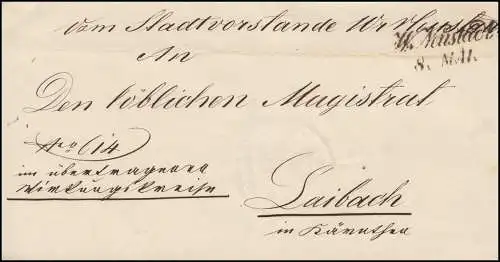 vom Stadtvorstande Wr. Neustadt
W. Neustadt
8. MAI.
An
Den löblichen Magistrat
No 614
im übertragenen
Wirkungskreise
Laibach
in Kärnthen